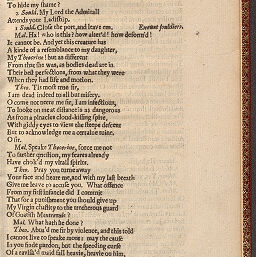 To hide my shame?
2. Sould. My Lord the Admirall
Attends your Ladiship.
1 Sould. Close the port, and leave em. Exeunt souldiers.
Mal. Ha! who is this? how alter'd! how deform'd!
It cannot be. And yet this creature has
A kinde of a resemblance to my daughter,
My Theocrine! but as different
From that she was, as bodies dead are in
Their best perfections, from what they were
When they had life and motion.
Theo. Tis most true sir,
I am dead indeed to all but misery.
O come not neere me sir, I am infectious,
To looke on me at distance is as dangerous
As from a pinacles cloud-kissing spire,
With giddy eyes to view the steepe descent
But to acknowledge me a certaine ruine,
O sir.
Mal. Speake Theocrine, force me not
To farther question, my feares already
Have chok'd my vitall spirits.
Theo. Pray you turne away
Your face and heare me, and with my last breath
Give me leave to accuse you. What offence
From my first infancie did I commit
That for a punishment you should give up
My Virgin chastity to the trecherous guard
Of Goatish Montreville?
Mal. What hath he done?
Theo. Abus'd me sir by violence, and this told
I cannot live to speake more: may the cause
In you finde pardon, but the speeding curse
Of a ravish'd maid fall heavie, heavie on him,